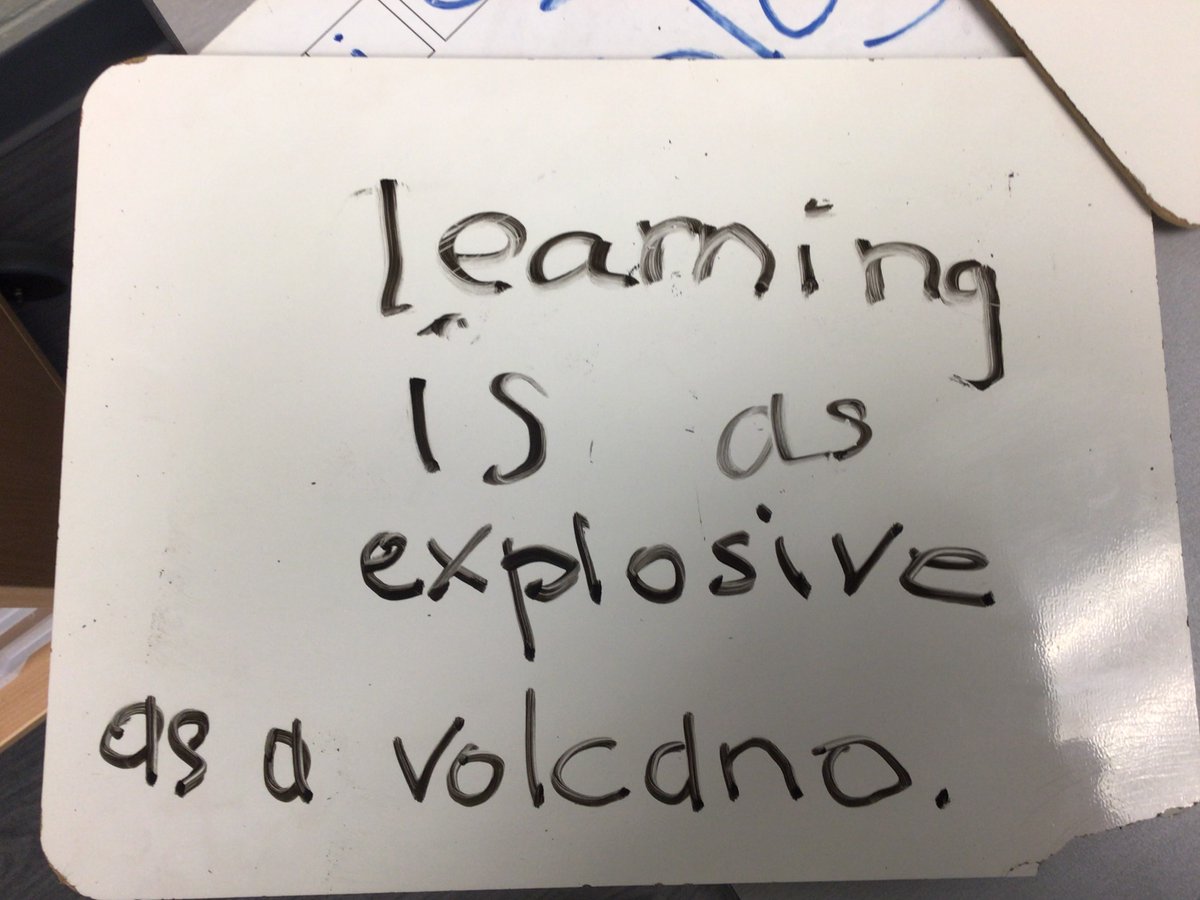 learning
is as
explosive
as a volcano.